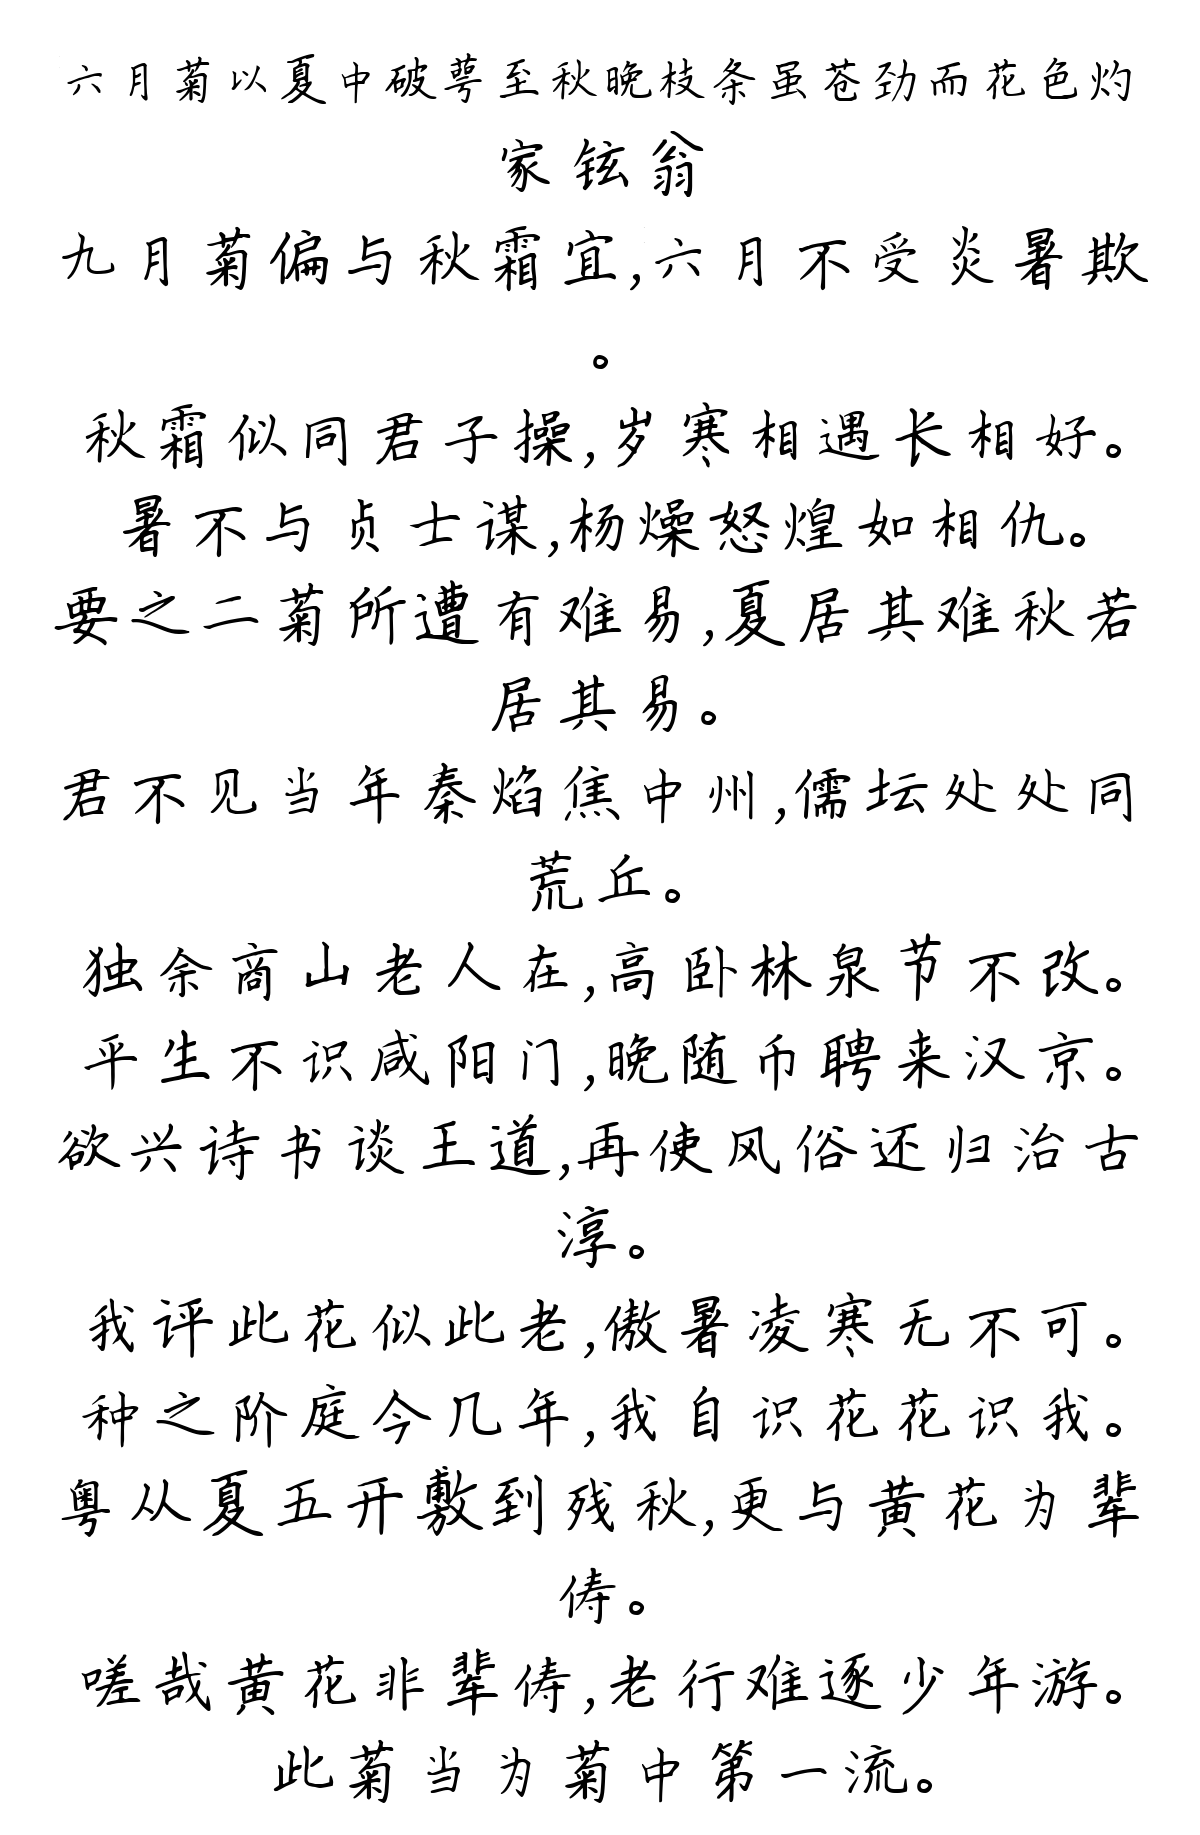 六月菊以夏中破萼至秋晚枝条虽苍劲而花色灼
家铉翁
九月菊偏与秋霜宜,六月不受炎暑欺
。
秋霜似同君子操,岁寒相遇长相好。
暑不与贞士谋,杨燥怒煌如相仇。
要之二菊所遭有难易,夏居其难秋若
居其易。
君不见当年秦焰焦中州,儒坛处处同
荒丘。
独余商山老人在,高卧林泉节不改。
平生不识咸阳门,晚随币聘来汉京。
欲兴诗书谈王道,再使风俗还归治古
淳。
我评此花似此老,傲暑凌寒无不可。
种之阶庭今几年,我自识花花识我。
粤从夏五开敷到残秋,更与黄花为辈
俦。
嗟哉黄花非辈俦,老行难逐少年游。
此菊当为菊中第一流。